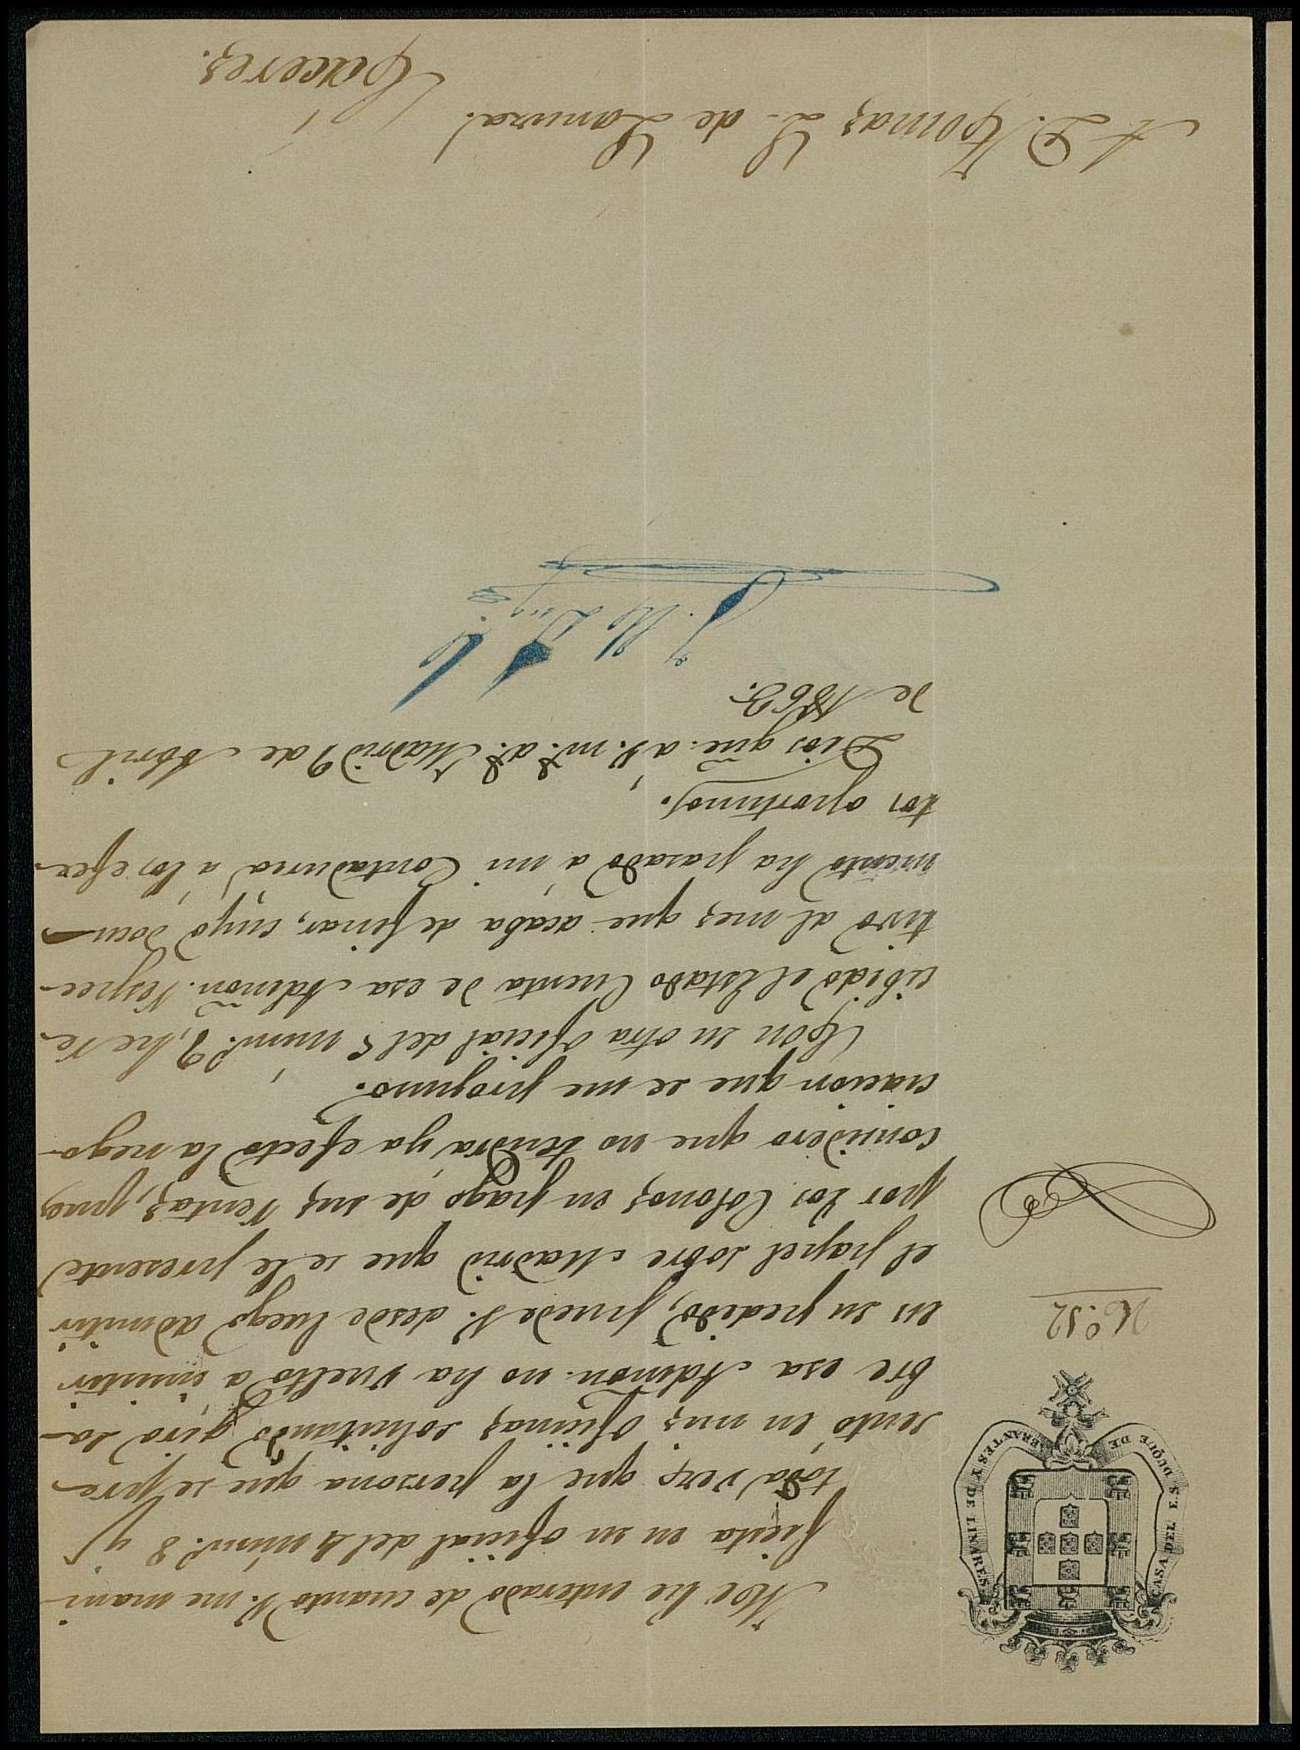 CASA DEL E.S. DUQUE DE ABRANTES Y DE LINARES
N.º 52
Me he enterado de cuanto V. me mani-
fiesta en su oficial del 4 núm.º 8 y
toda vez que la persona que se pre-
sentó en mis Oficinas solicitando giro so-
bre esa Admon. no ha vuelto a insistir
en su pedido, puede V. desde luego admitir
el papel sobre Madrid que se le presente
por los Colonos en pago de sus rentas, pues
considero que no tendrá ya efecto la nego-
ciacion que se me propuso.
Con su otra oficial del 5 num.º 9, he re-
cibido el Estado Cuenta de esa Admon. respec-
tivo al mes que acaba de finar, cuyo docu-
mento ha pasado á mi Contaduria á los efec-
tos oportunos.
Dios gue. a V. m.s a.s Madrid 9 de Abril
de 1863.
A D. Tomas L. de Lanuza.
Caceres.